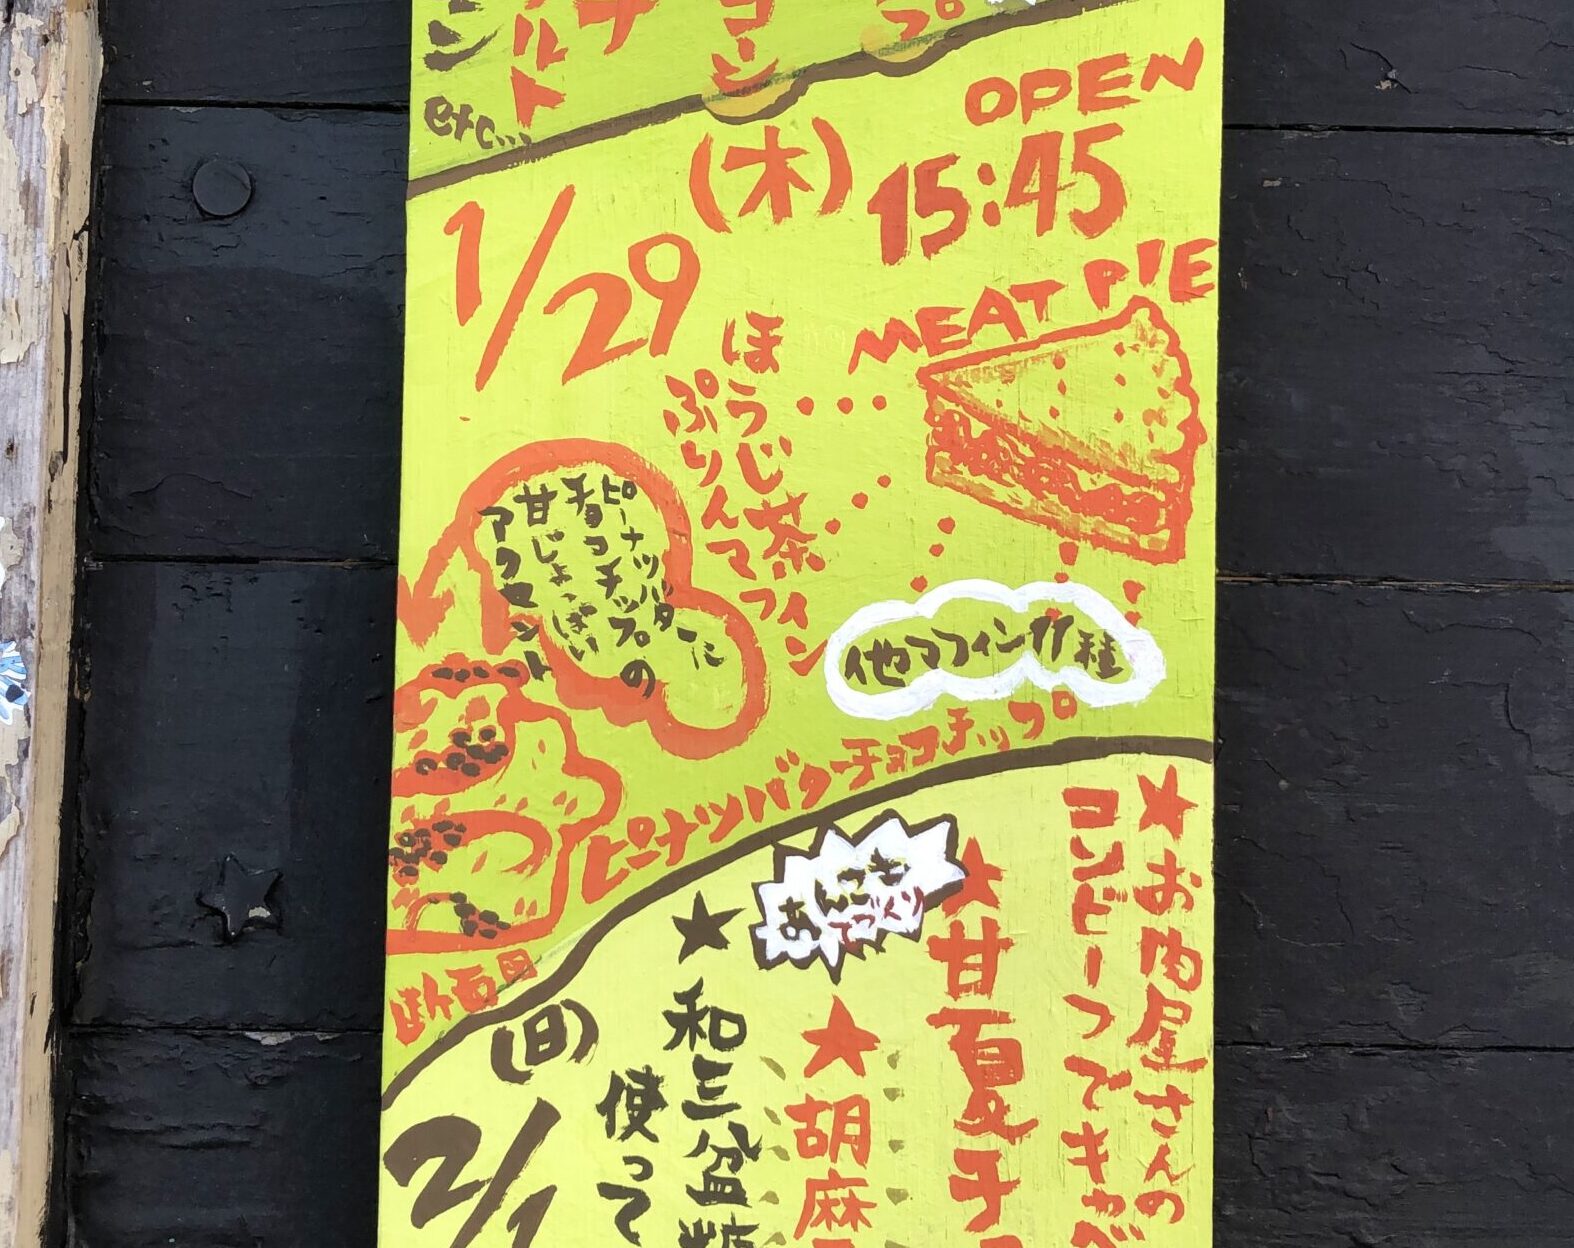 ン
ルト
チ
コーン
プ
etc...
1/29
(木)
OPEN
15:45
MEAT PIE
ほうじ茶
ぷりんマフィン
ピーナッツバターに
チョコチップの
甘じょっぱい
アクセント
他マフィン11種
ピーナツバターチョコチップ
断面図
2/1
(日)
★お肉屋さんの
コンビーフでキャベ
★甘夏チ
あんこも
手づくり
★胡麻
★和三盆糖
使って